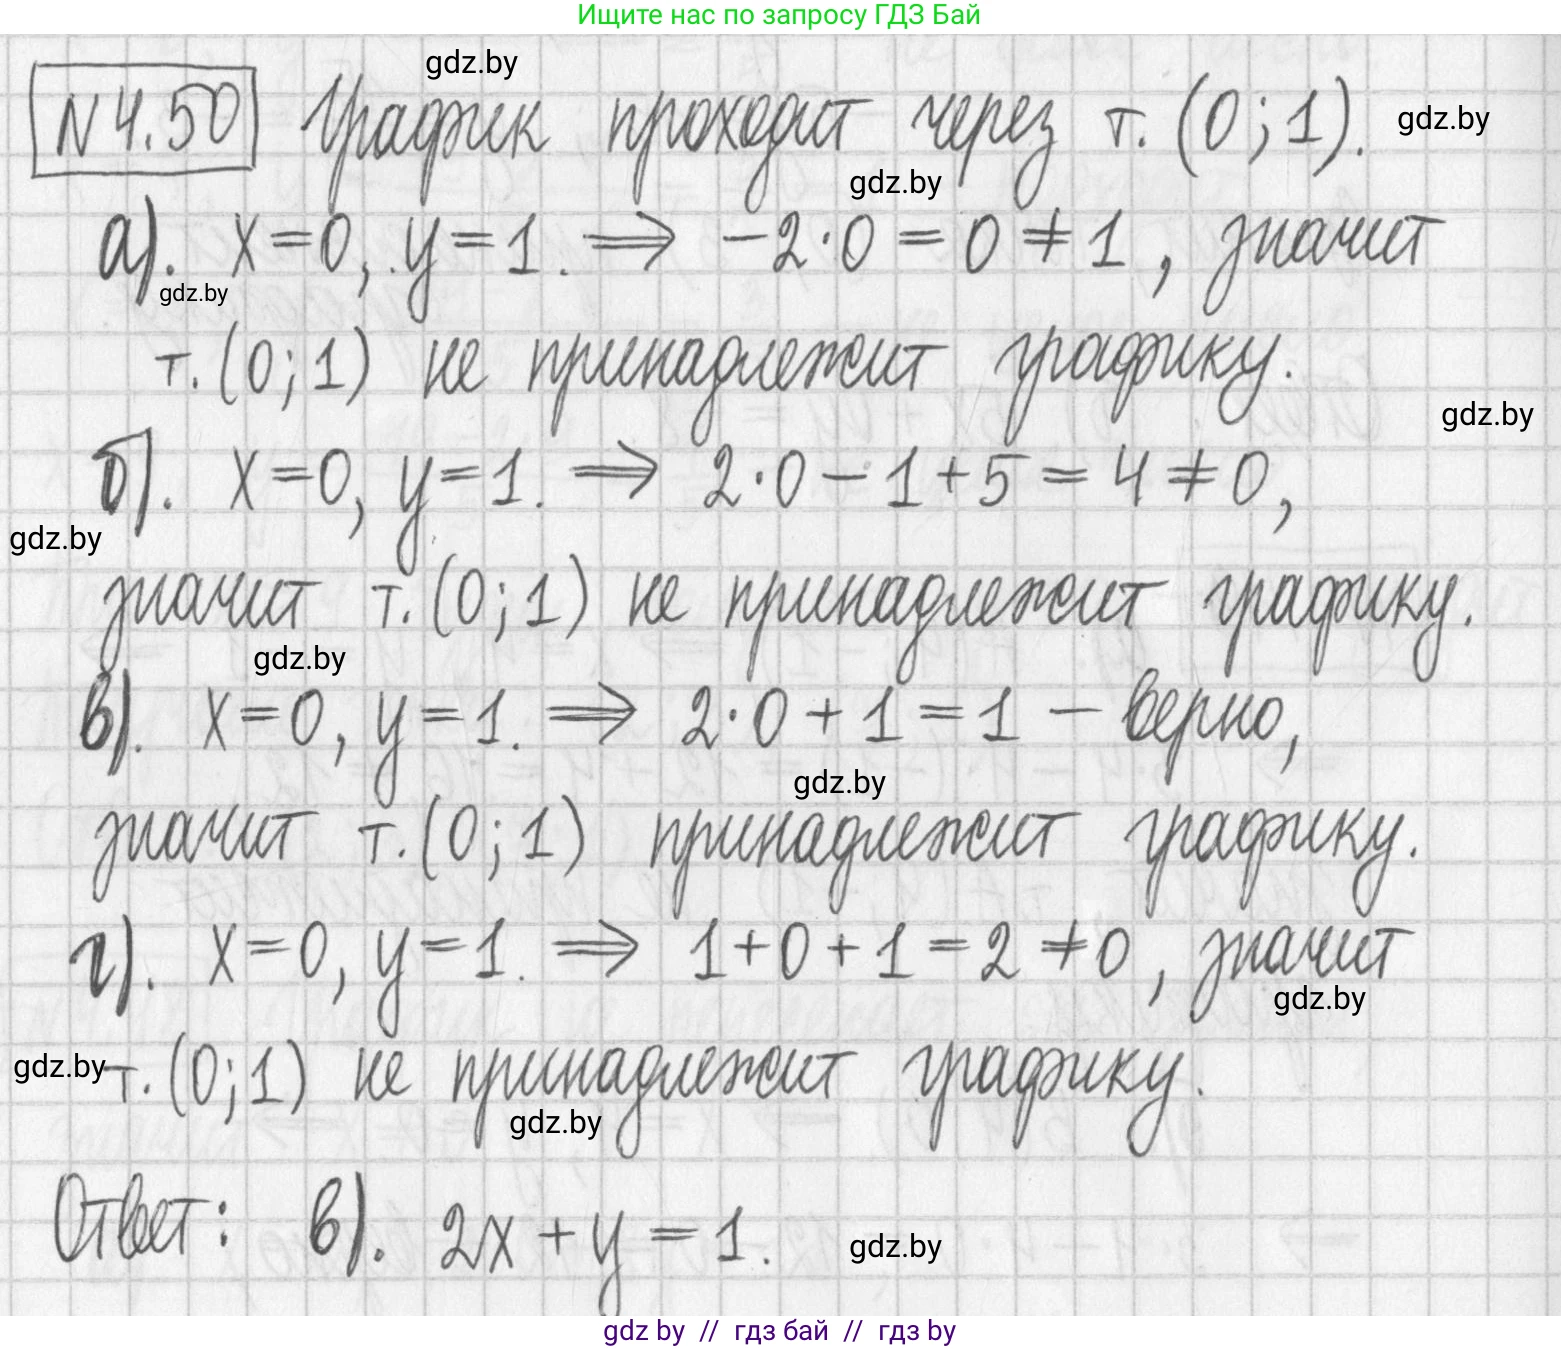 Ищите нас по запросу ГДЗ Бай
gdz.by
N 4.50 График проходит через т. (0;1).
gdz.by
gdz.by
а). x=0, y=1. ⟹ -2·0=0≠1, значит
gdz.by
т.(0;1) не принадлежит графику.
gdz.by
б). x=0, y=1. ⟹ 2·0-1+5=4≠0,
gdz.by
значит т.(0;1) не принадлежит графику.
gdz.by
в). x=0, y=1. ⟹ 2·0+1=1 - верно,
gdz.by
значит т.(0;1) принадлежит графику.
г). x=0, y=1. ⟹ 1+0+1=2≠0, значит
gdz.by
gdz.by
т.(0;1) не принадлежит графику.
gdz.by
Ответ: в). 2x+y=1.
gdz.by
gdz by // гдз бай // гдз by